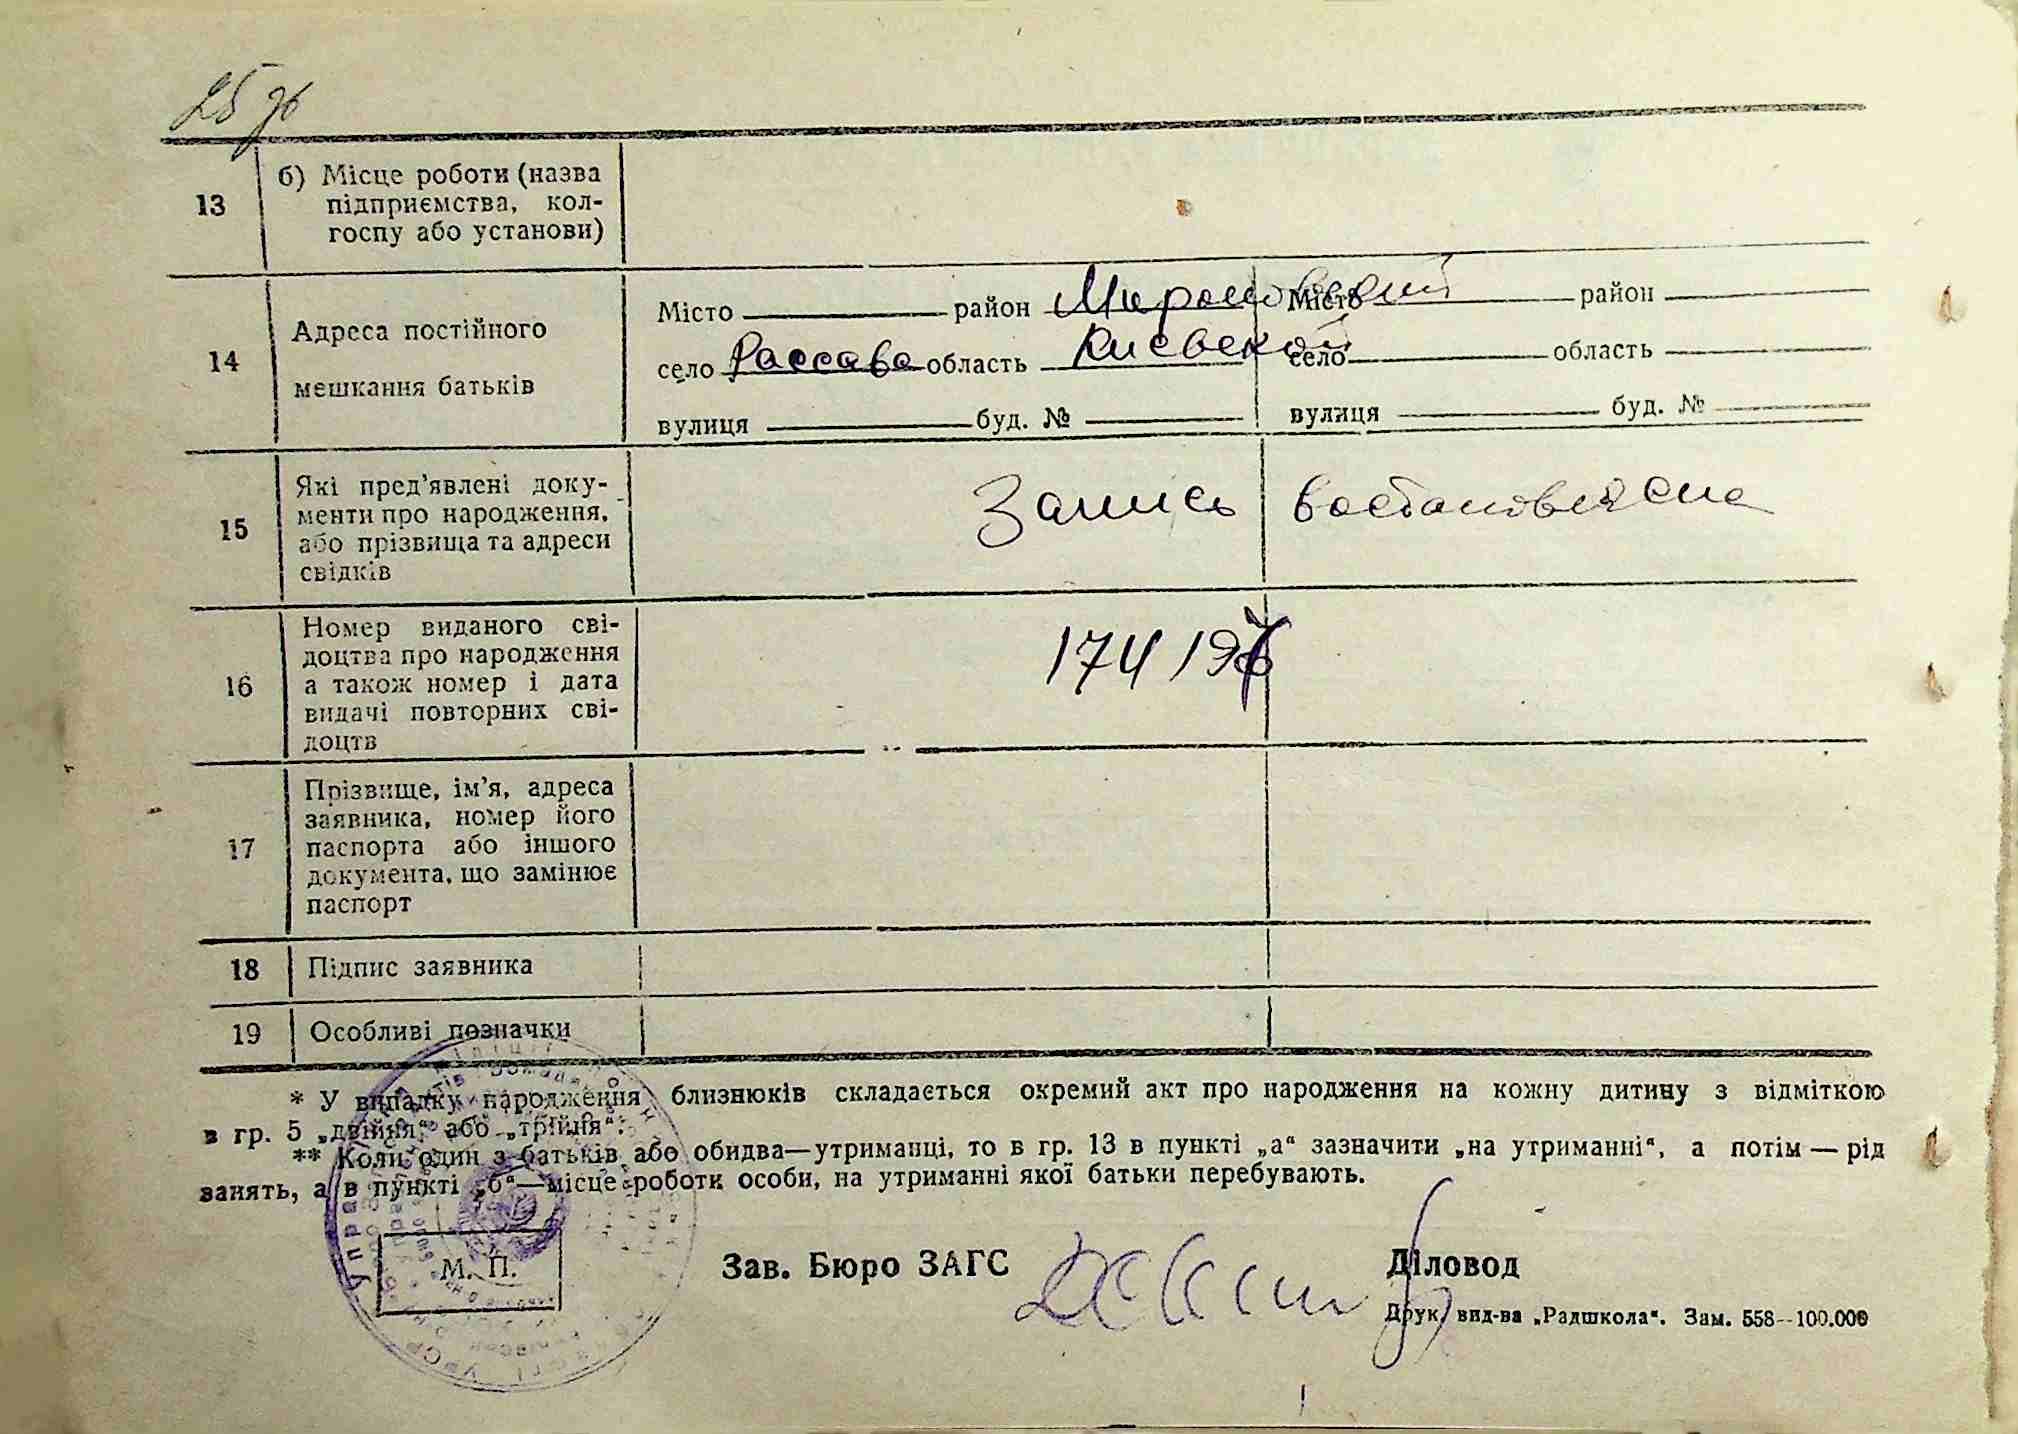 25
13 б) Місце роботи (назва
підприємства, кол-
госпу або установи)
14 Адреса постійного
мешкання батьків
Місто район Мироновский Місто район
село Россава область Киевской село область
вулиця буд. № вулиця буд. №
15 Які пред’явлені доку-
менти про народження,
або прізвища та адреси
свідків
Запись востановлена
16 Номер виданого сві-
доцтва про народження
а також номер і дата
видачі повторних сві-
доцтв
174 19
17 Прізвище, ім’я, адреса
заявника, номер його
паспорта або іншого
документа, що замінює
паспорт
18 Підпис заявника
19 Особливі позначки
* У випадку народження близнюків складається окремий акт про народження на кожну дитину з відміткою
в гр. 5 „двійня“ або „трійня“.
** Коли один з батьків або обидва—утриманці, то в гр. 13 в пункті „а“ зазначити „на утриманні“, а потім — рід
занять, а в пункті „б“—місце роботи особи, на утриманні якої батьки перебувають.
М. П.
Зав. Бюро ЗАГС Діловод
Друк. вид-ва „Радшкола“. Зам. 558—100.000